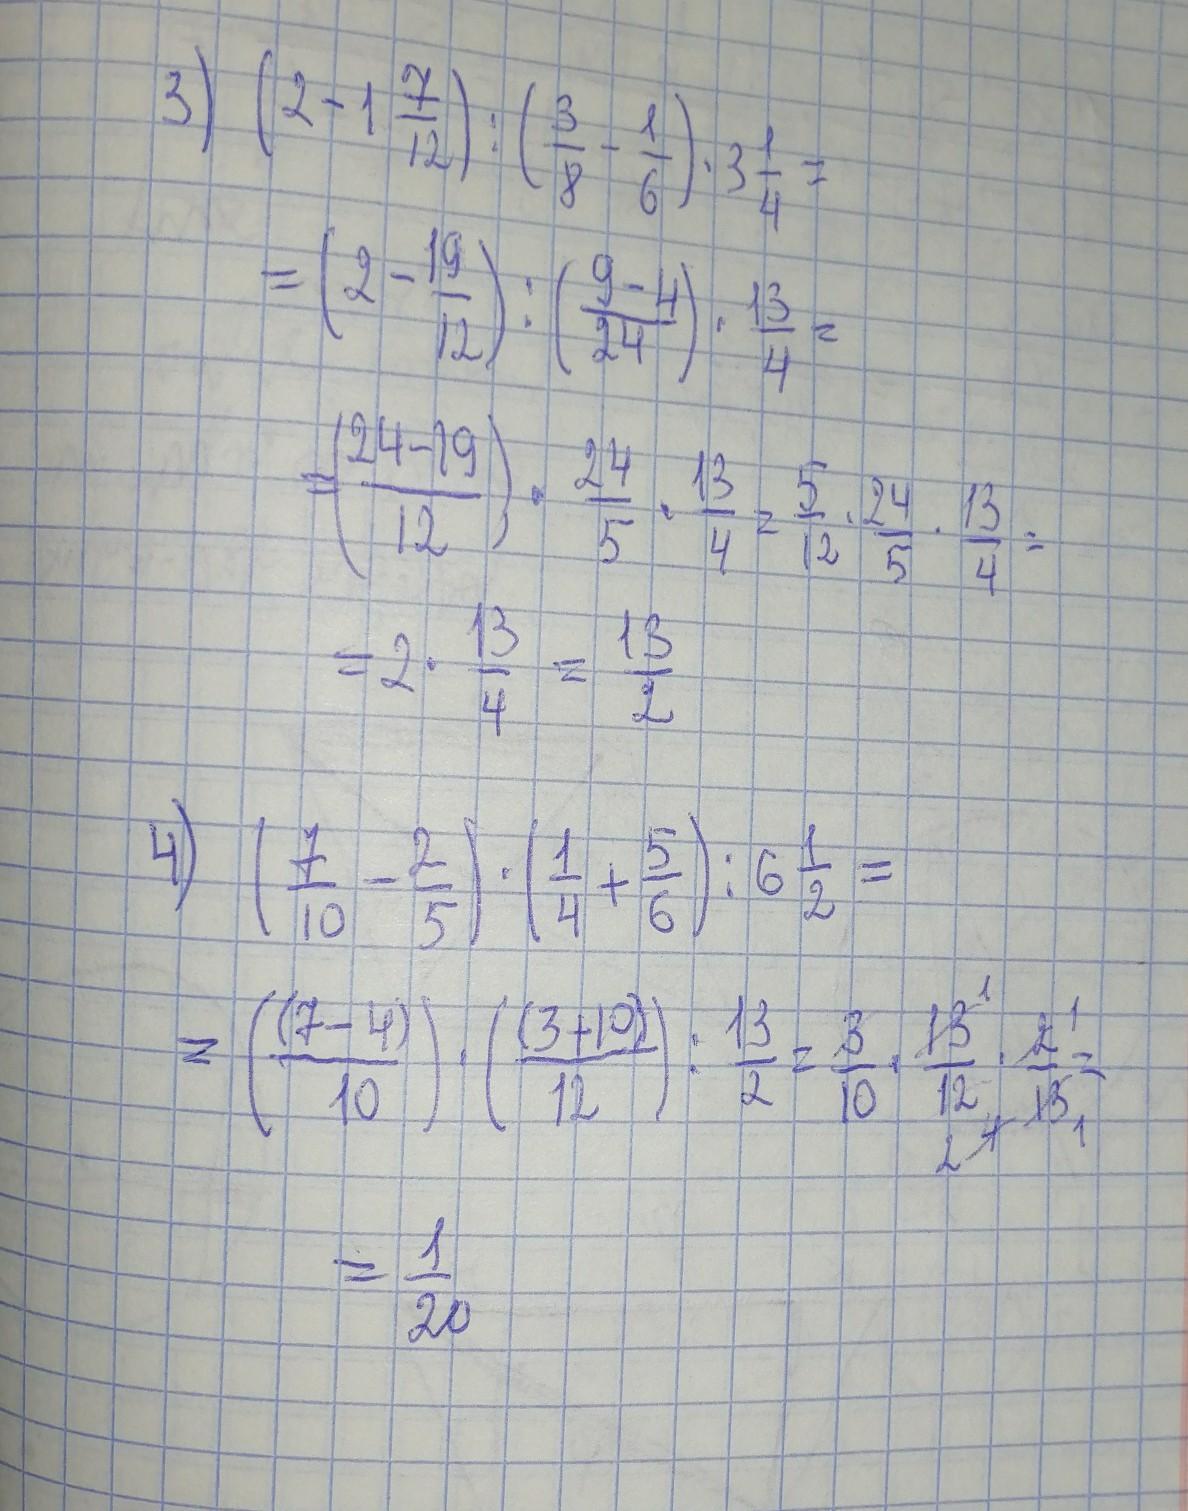 3) (2 - 1 7/12) : (3/8 - 1/6) · 3 1/4 =
= (2 - 19/12) : (9-4/24) · 13/4 =
= (24-19/12) · 24/5 · 13/4 = 5/12 · 24/5 · 13/4 =
= 2 · 13/4 = 13/2
4) (7/10 - 2/5) · (1/4 + 5/6) : 6 1/2 =
= ((7-4)/10) · ((3+10)/12) : 13/2 = 3/10 · 13/12 · 2/13 =
= 1/20